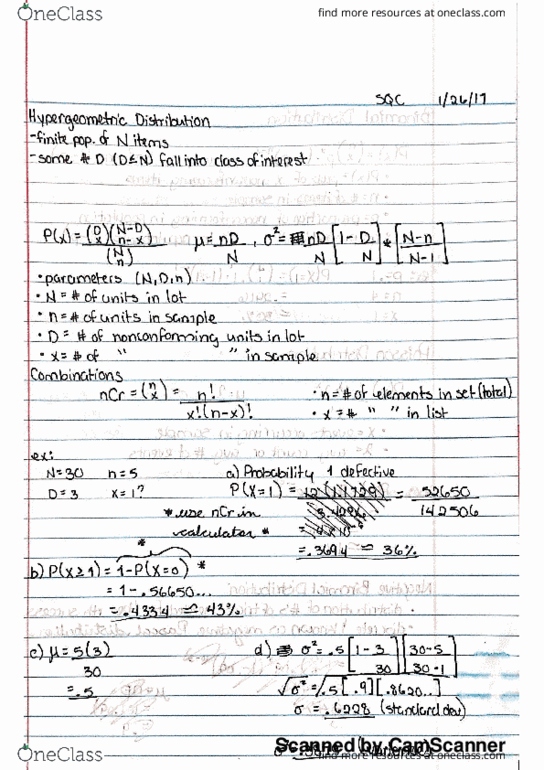 OneClass
find more resources at oneclass.com
SQC 1/26/17
Hypergeometric Distribution
-finite pop. of N items
-some # D (D≤N) fall into class of interest
P(x) = (D x)(N-D n-x) / (N n) μ = nD/N , σ² = nD/N [1-D/N] * [N-n/N-1]
• parameters (N, D, n)
• N = # of units in lot
• n = # of units in sample
• D = # of nonconforming units in lot
• x = # of " " in sample
Combinations
nCr = (n x) = n! / x!(n-x)! • n = # of elements in set (total)
• x = # " " in list
ex:
N=30 n=5 a) Probability 1 defective
D=3 x=1? P(x=1) = = 52650 / 142506
*use nCr in
calculator *
= .3694 ≈ 36%
*
b) P(x≥1) = 1-P(x=0) *
= 1 - .56650...
= .4334 ≈ 43%
c) μ = 5(3) / 30
= .5
d) σ² = .5 [1-3/30] [30-5/30-1]
√σ² = √.5[.9][.8620..]
σ = .6228 (standard dev)
Scanned by CamScanner
OneClass
find more resources at oneclass.com